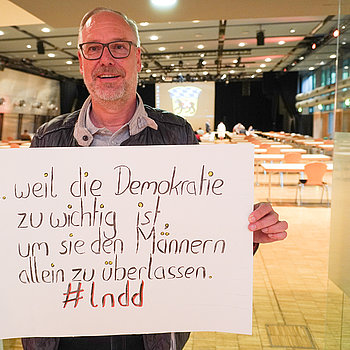 . weil die Demokratie
zu wichtig ist,
um sie den Männern
allein zu überlassen.
#lndd